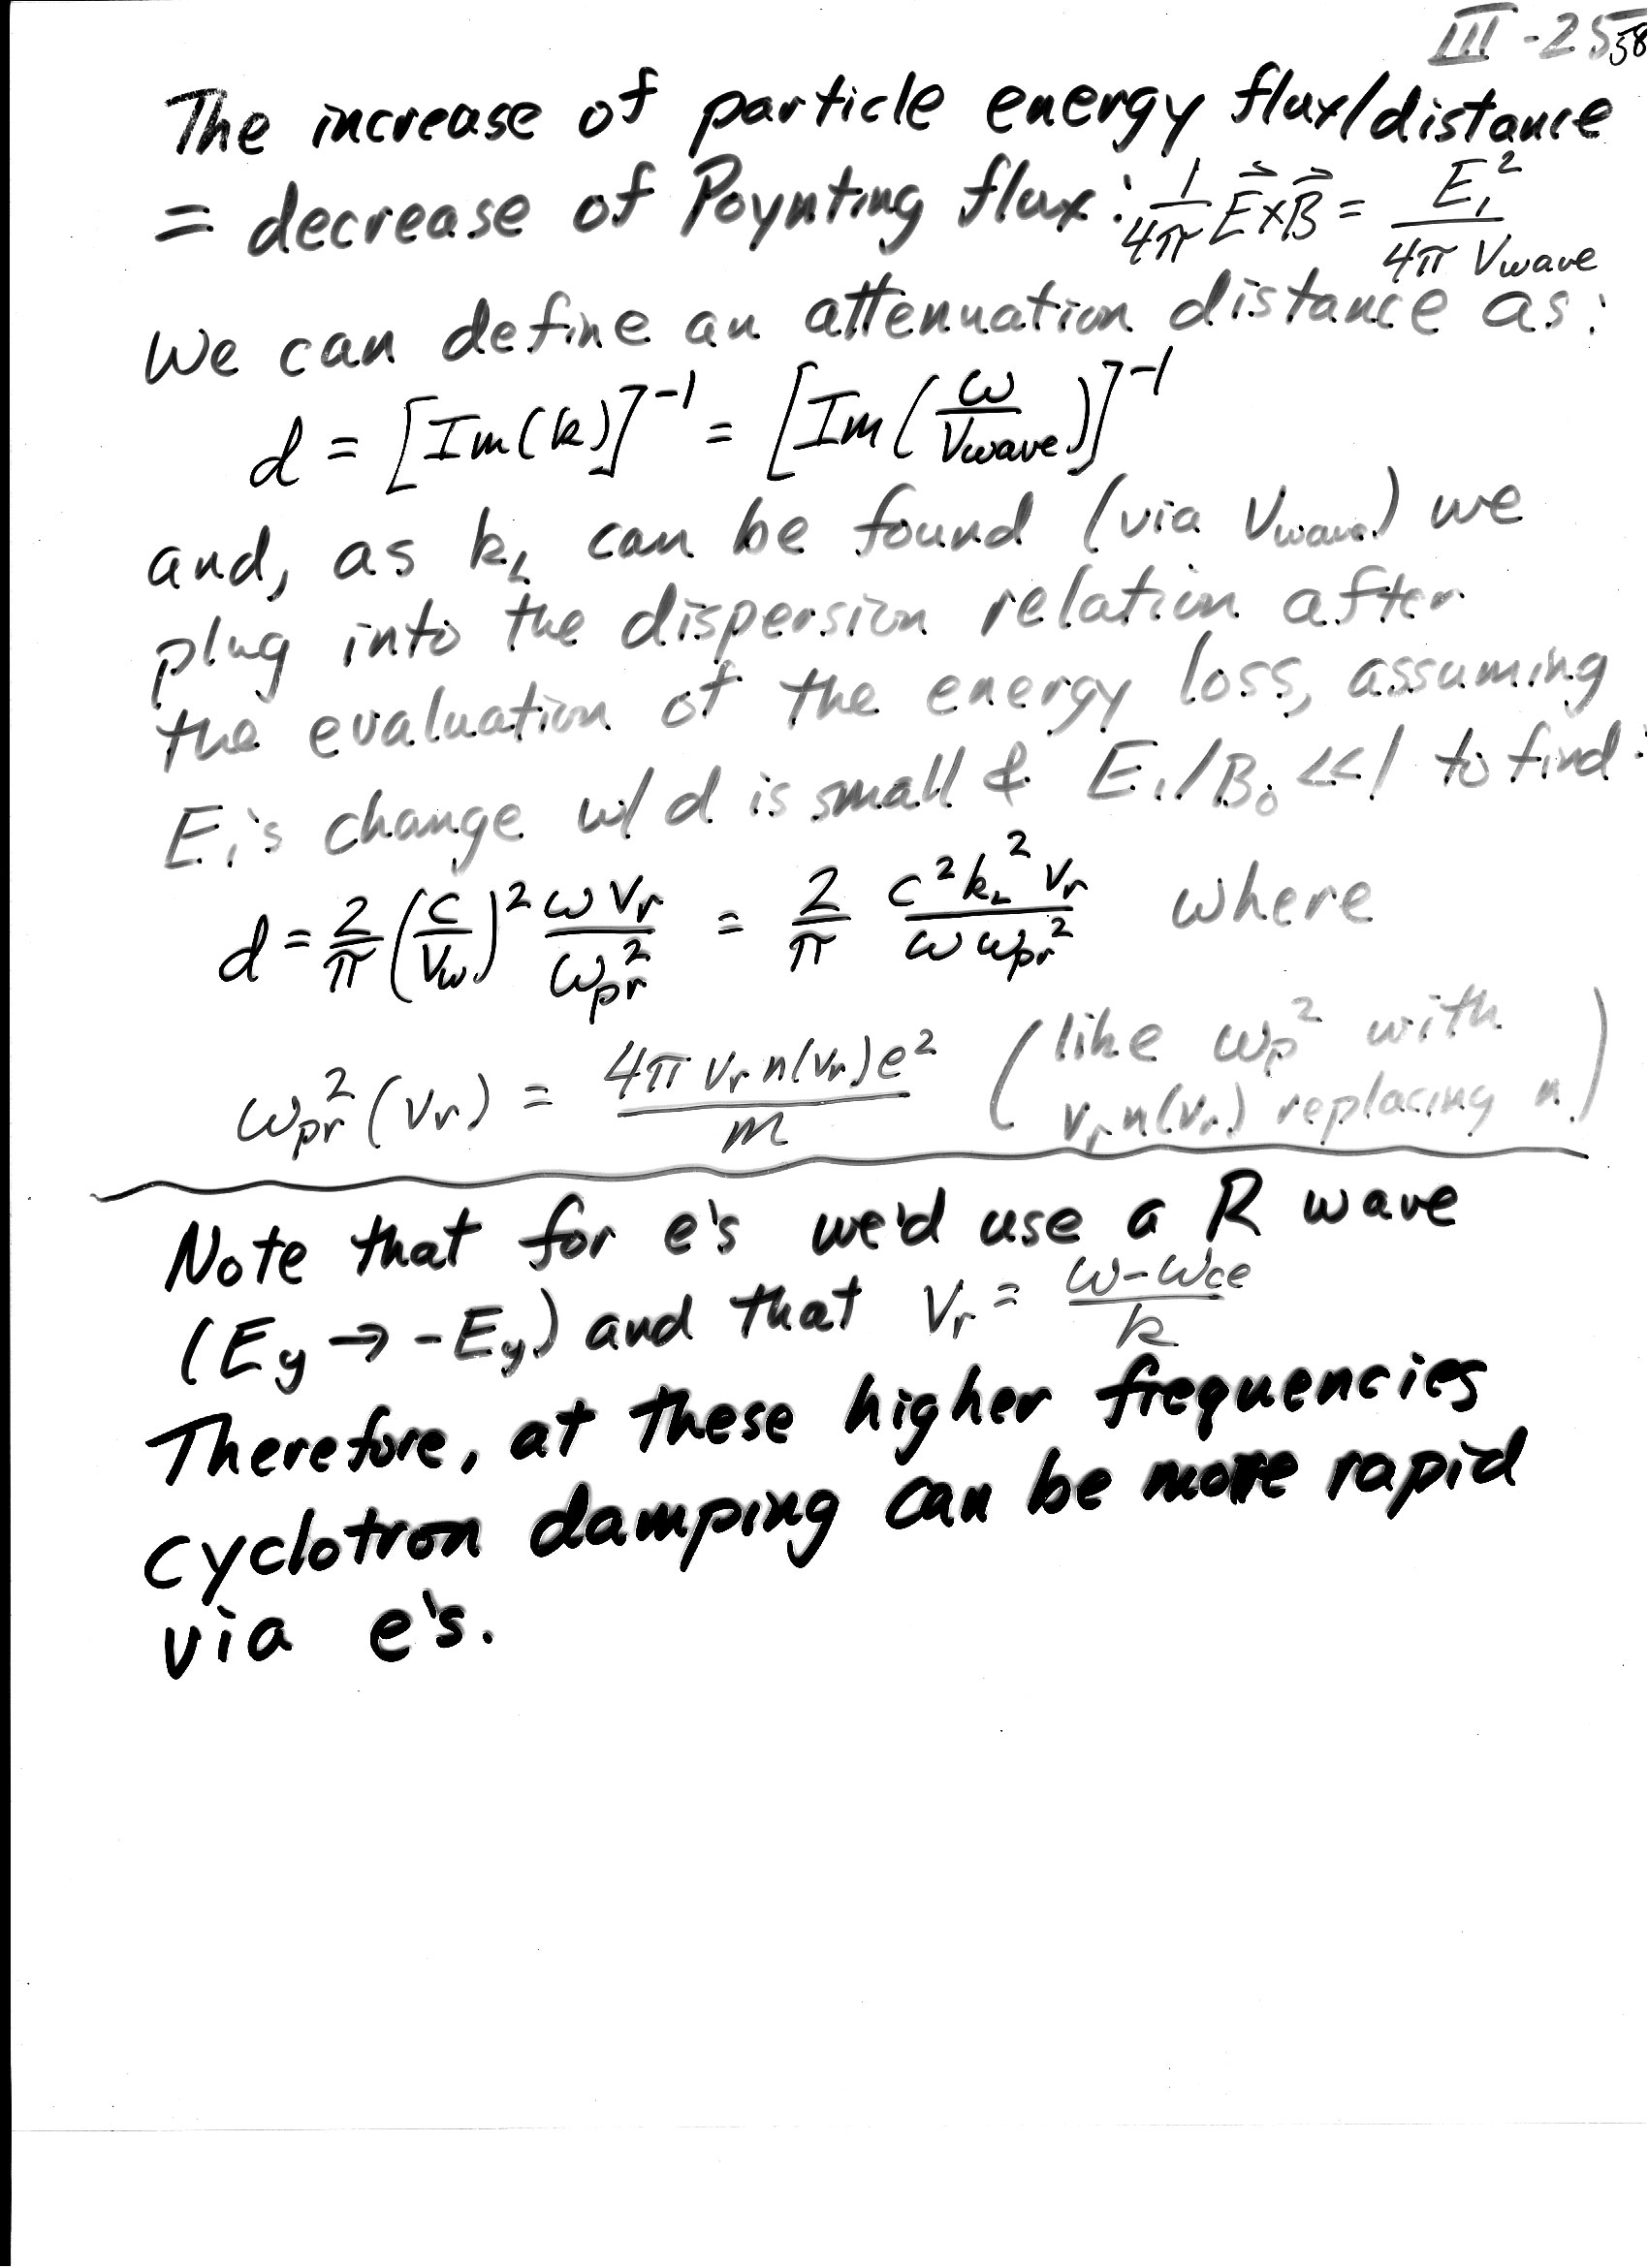 III-25 58
The increase of particle energy flux/distance
= decrease of Poynting flux: 1/4π E⃗×B⃗ = E₁²/(4π Vwave)
We can define an attenuation distance as:
d = [Im(k)]⁻¹ = [Im(ω/Vwave)]⁻¹
and, as k_L can be found (via Vwave) we
plug into the dispersion relation after
the evaluation of the energy loss, assuming
E₁'s change w/ d is small & E₁/B₀ << 1 to find:
d = 2/π (c/Vw)² ωVr/ωpr² = 2/π c²k_L²Vr/(ω ωpr²) where
ωpr²(Vr) = 4π Vr n(Vr)e²/m (like ωp² with
Vr n(Vr) replacing n)
Note that for e's we'd use a R wave
(Ey → -Ey) and that Vr = (ω-ωce)/k
Therefore, at these higher frequencies
cyclotron damping can be more rapid
via e's.